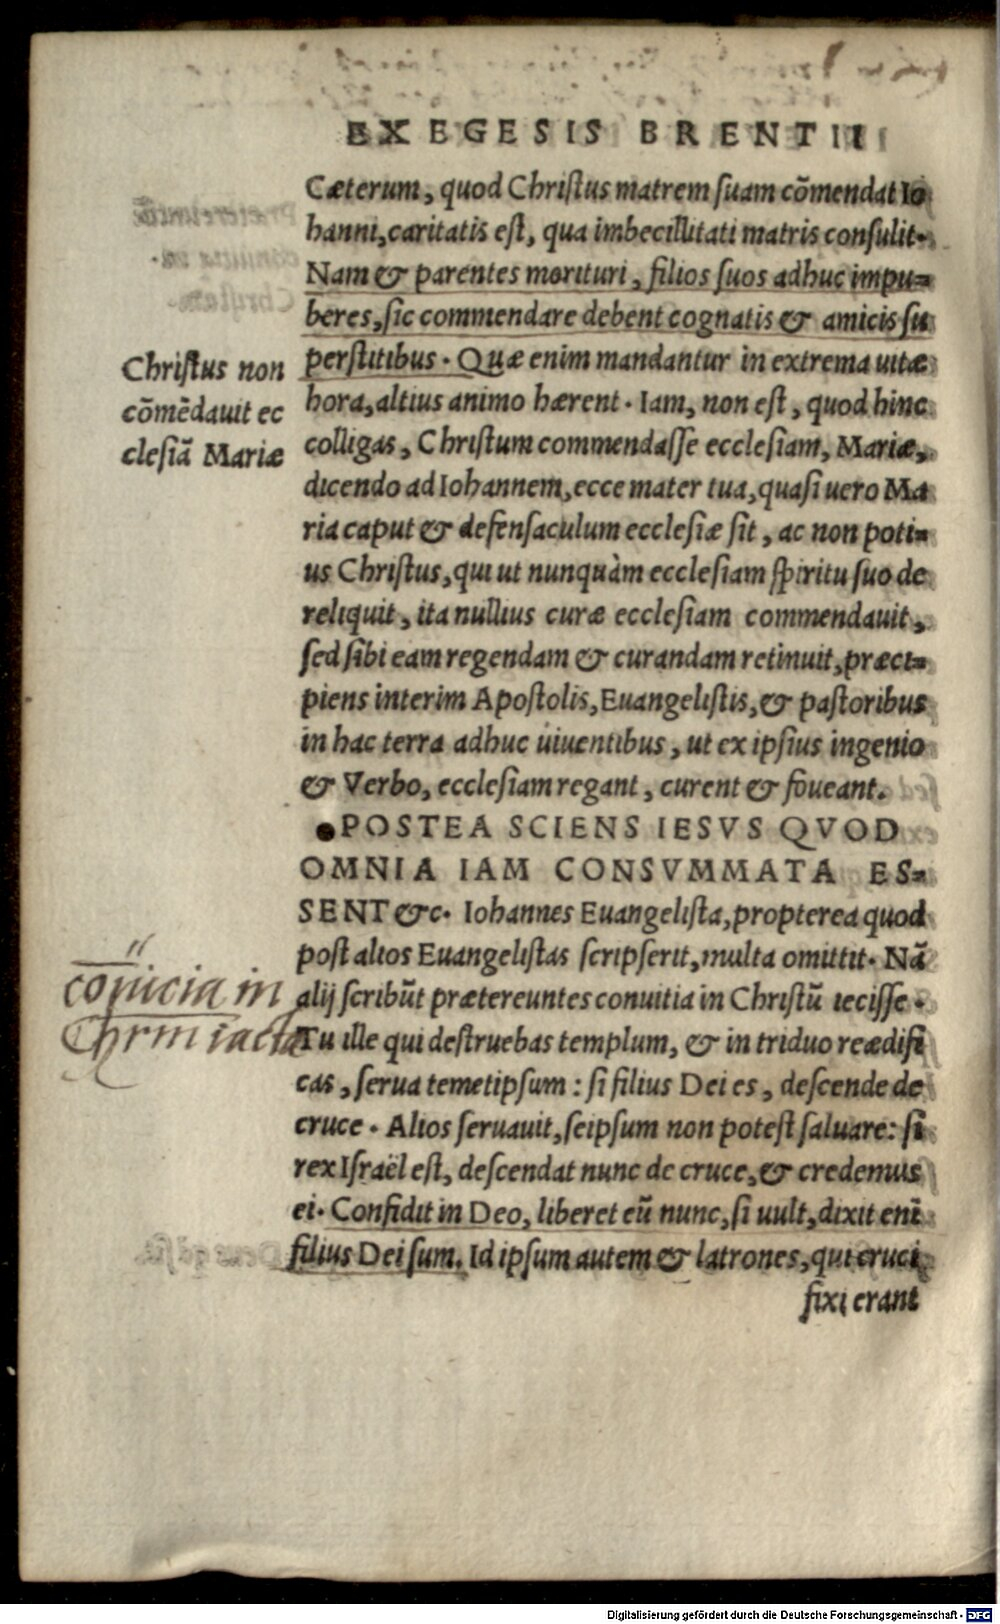 EXEGESIS BRENTII
Cæterum, quod Christus matrem suam cōmendat Io
hanni, caritatis est, qua imbecillitati matris consulit.
Nam & parentes morituri, filios suos adhuc impu=
beres, sic commendare debent cognatis & amicis su
perstitibus. Quæ enim mandantur in extrema uitæ
hora, altius animo hærent. Iam, non est, quod hinc
colligas, Christum commendasse ecclesiam, Mariæ,
dicendo ad Iohannem, ecce mater tua, quasi uero Ma
ria caput & defensaculum ecclesiæ sit, ac non poti=
us Christus, qui ut nunquàm ecclesiam spiritu suo de
reliquit, ita nullius curæ ecclesiam commendauit,
sed sibi eam regendam & curandam retinuit, præci=
piens interim Apostolis, Euangelistis, & pastoribus
in hac terra adhuc uiuentibus, ut ex ipsius ingenio
& Verbo, ecclesiam regant, curent & foueant.
Christus non
cōmēdauit ec
clesiā Mariæ
POSTEA SCIENS IESVS QVOD
OMNIA IAM CONSVMMATA ES=
SENT &c. Iohannes Euangelista, propterea quod
post alios Euangelistas scripserit, multa omittit. Nā
alij scribūt prætereuntes conuitia in Christū iecisse.
Tu ille qui destruebas templum, & in triduo reædifi
cas, serua temetipsum: si filius Dei es, descende de
cruce. Alios seruauit, seipsum non potest saluare: si
rex Israël est, descendat nunc de cruce, & credemus
ei. Confidit in Deo, liberet eū nunc, si uult, dixit enī
filius Dei sum. Id ipsum autem & latrones, qui cruci
fixi erant
conuicia in
Chrm iacta
Digitalisierung gefördert durch die Deutsche Forschungsgemeinschaft - DFG